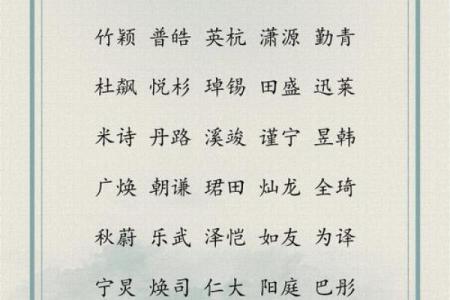 竹颖 普皓 英杭 潇源 勤青
杜飙 悦杉 琸锡 田盛 迅莱
米诗 丹路 溪竣 谨宁 昱韩
广焕 朝谦 珺田 灿龙 全琦
秋蔚 乐武 泽恺 如友 为译
宁炅 焕司 仁大 阳庭 巴彤